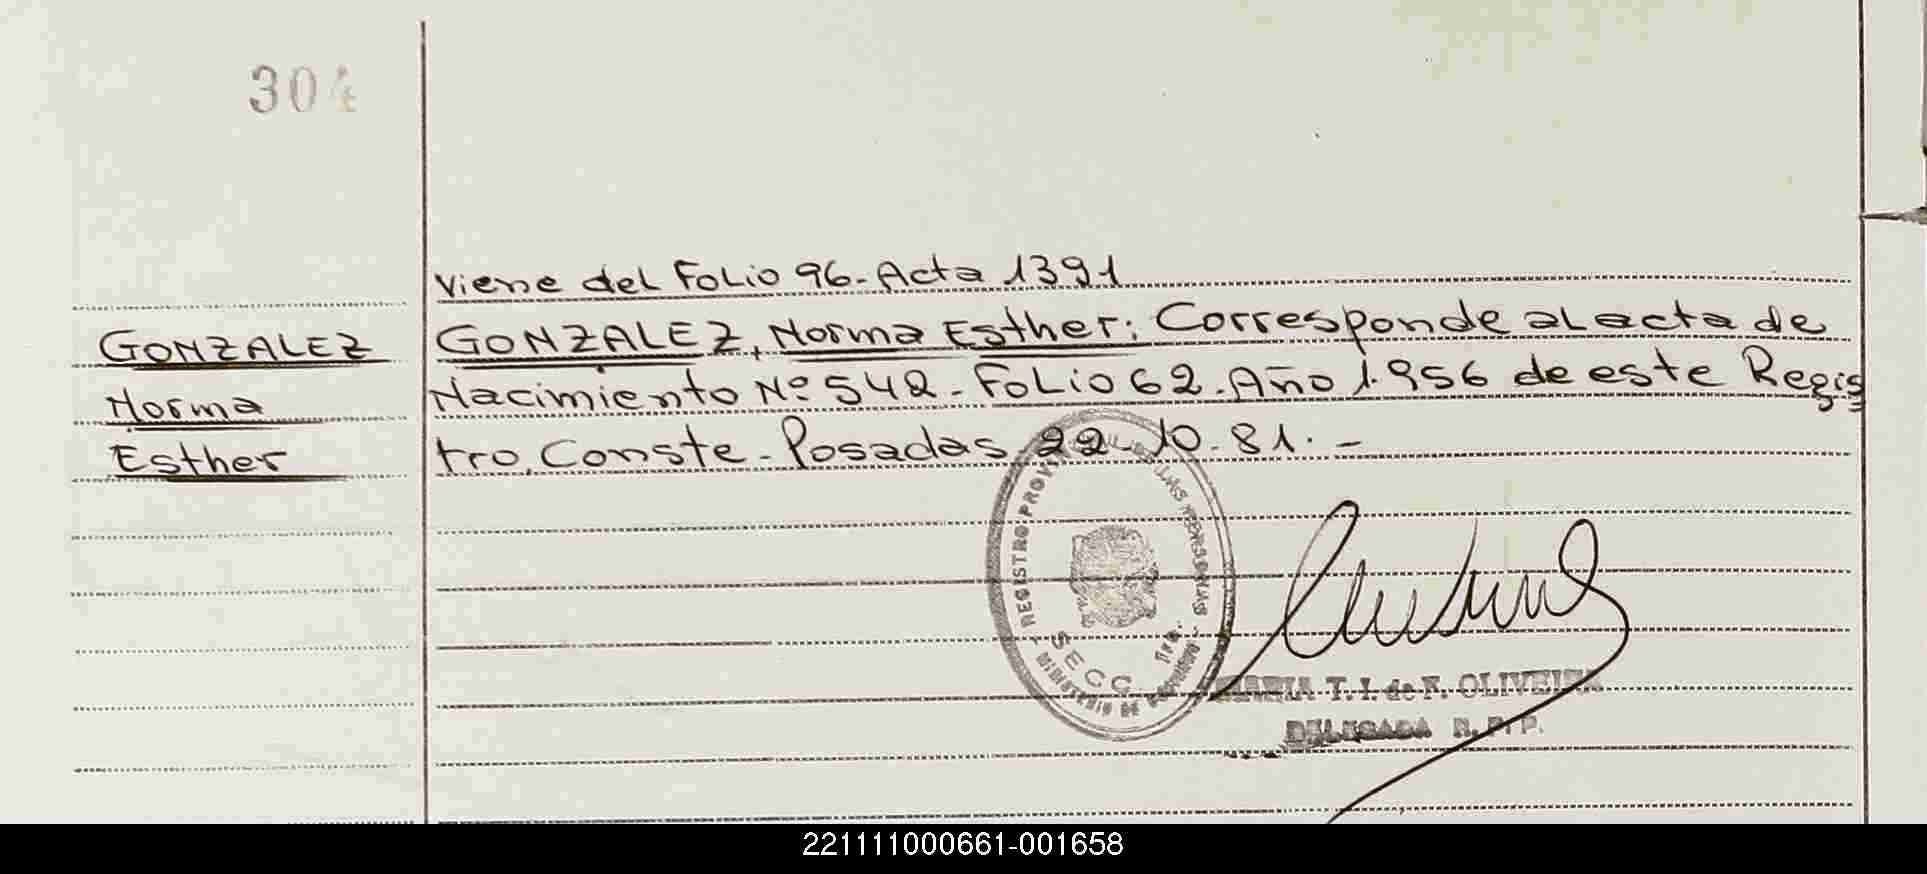 304
GONZALEZ
Norma
Esther
Viene del Folio 96-Acta 1391
GONZALEZ, Norma Esther: Corresponde al acta de
Nacimiento Nº 542-Folio 62-Año 1.956 de este Regis
tro, Conste-Posadas, 22-10-81.-
REGISTRO PROVINCIAL DE LAS PERSONAS
MINISTERIO DE GOBIERNO
SECC
MARIA T. I. de F. OLIVEIRA
DELEGADA R. P. P.
221111000661-001658